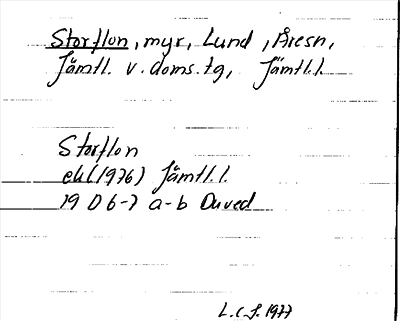 Storflon, myr, Lund, Åresn,
Jämtl. v. doms.tg, Jämtl.l.
Storflon
ek(1976) Jämtl.l.
19 D 6-7 a-b Duved
L.C.J. 1977